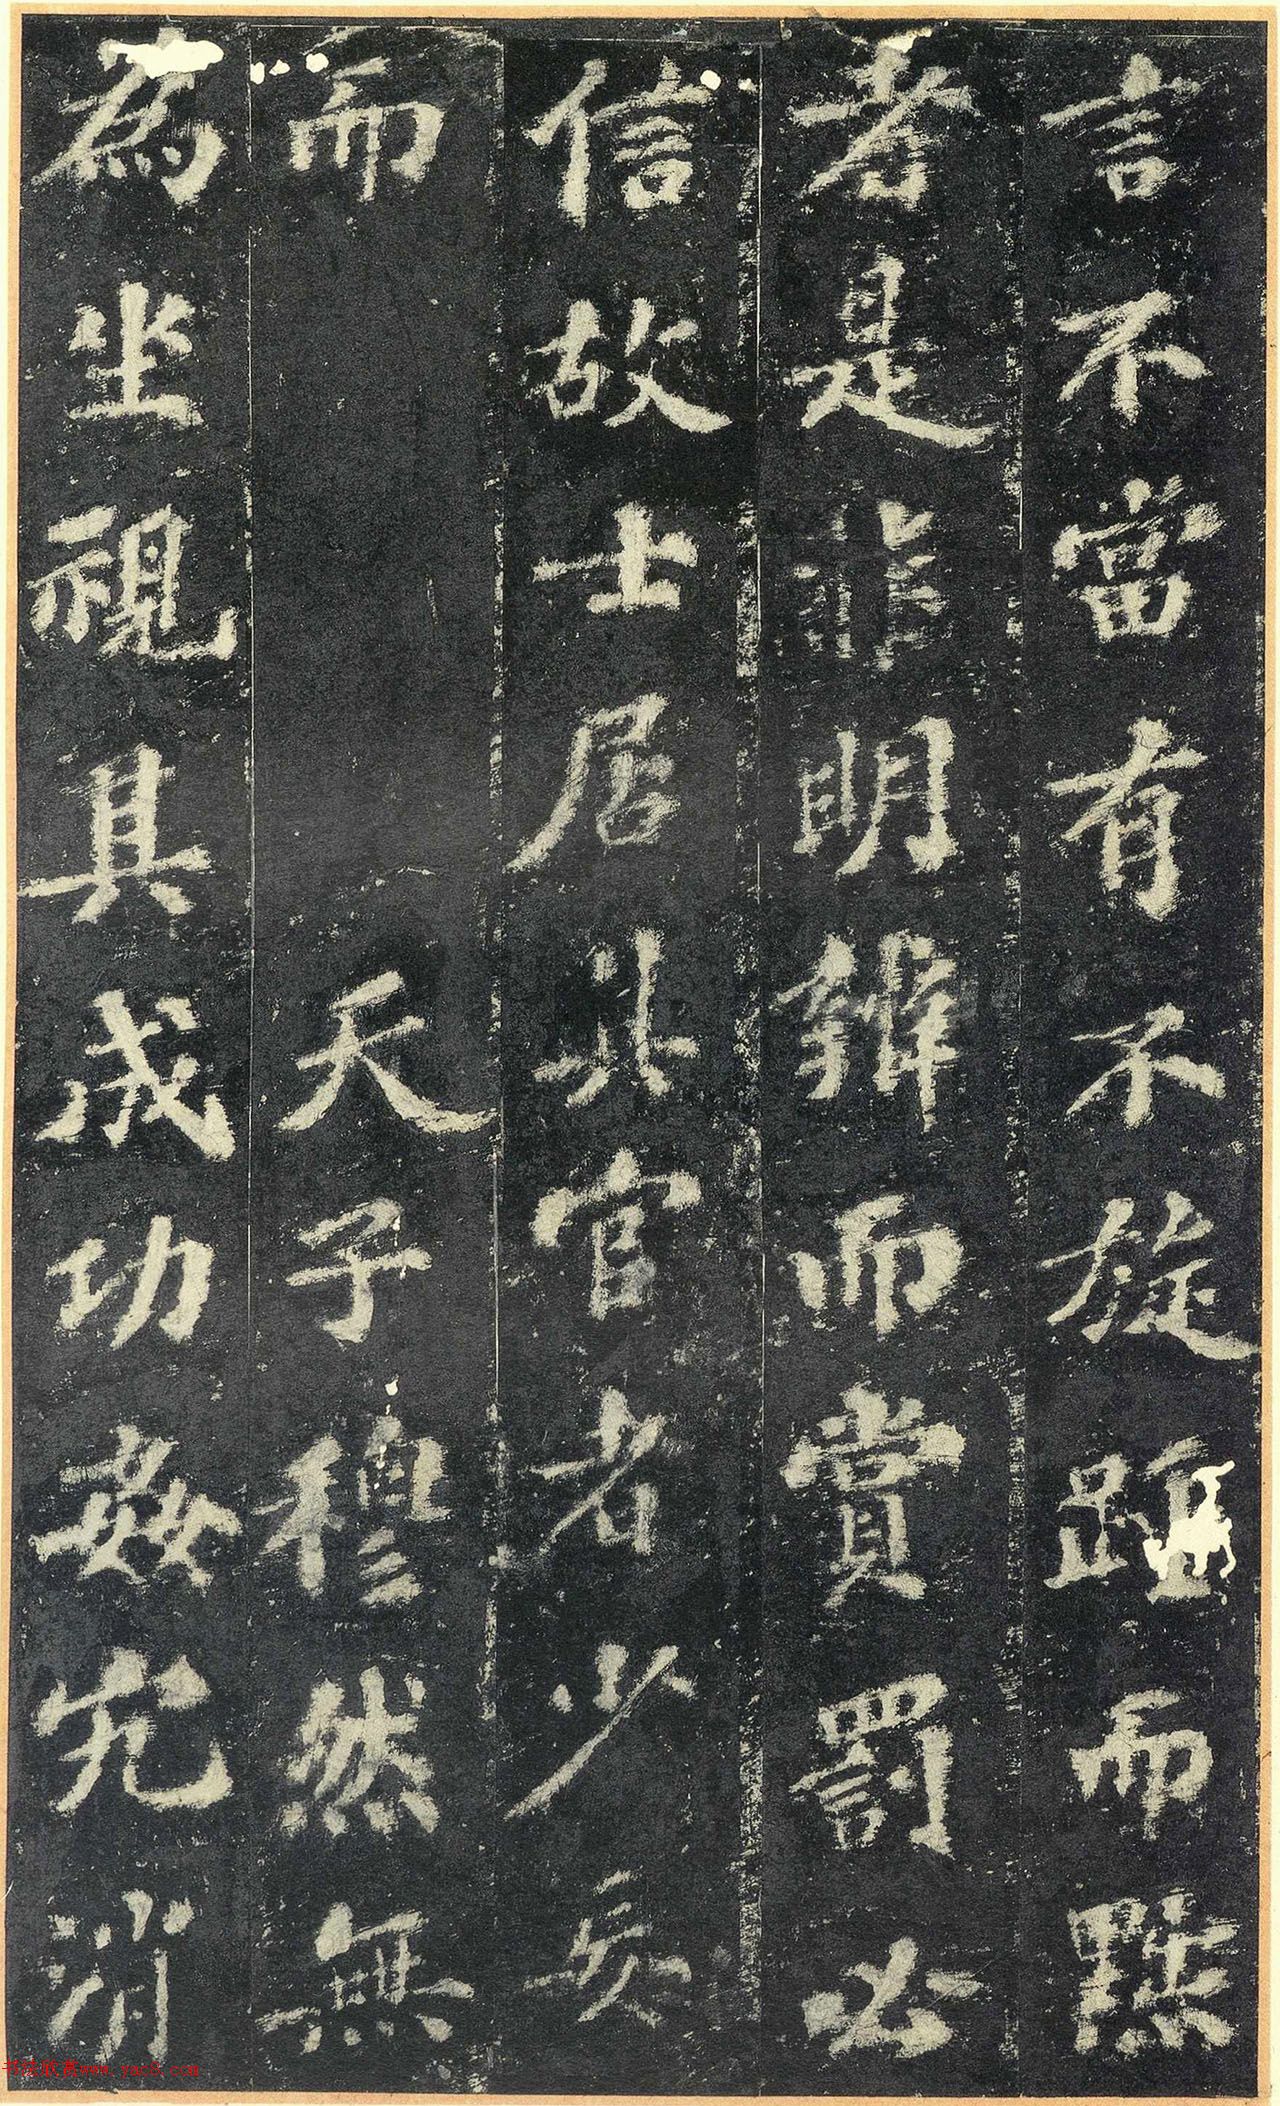 言不當有不旋踵而黜
者是非明辨而賞罰必
信故士居此官者少妄
而天子穆然無
為坐視其成功姦宄消
书法欣赏www.yac8.com